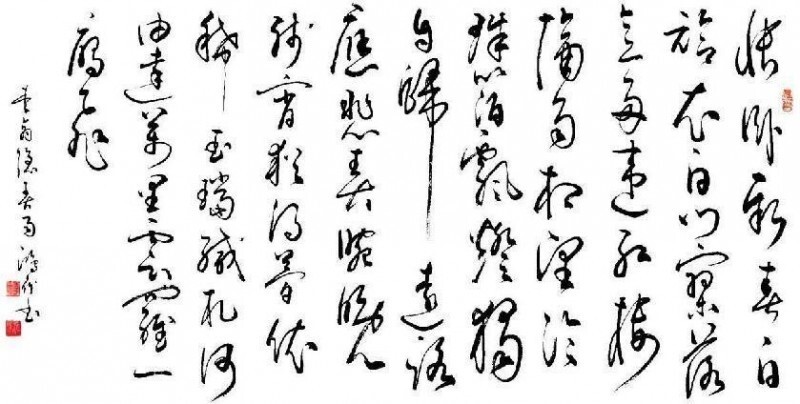 悵卧新春白
袷衣白门寥落
意多违红楼
隔雨相望冷
珠箔飄燈獨
自歸遠路
應悲春晼晚
残宵猶得夢依
稀玉璫缄札何
由達萬里雲羅一
雁飞
李商隐春雨 书